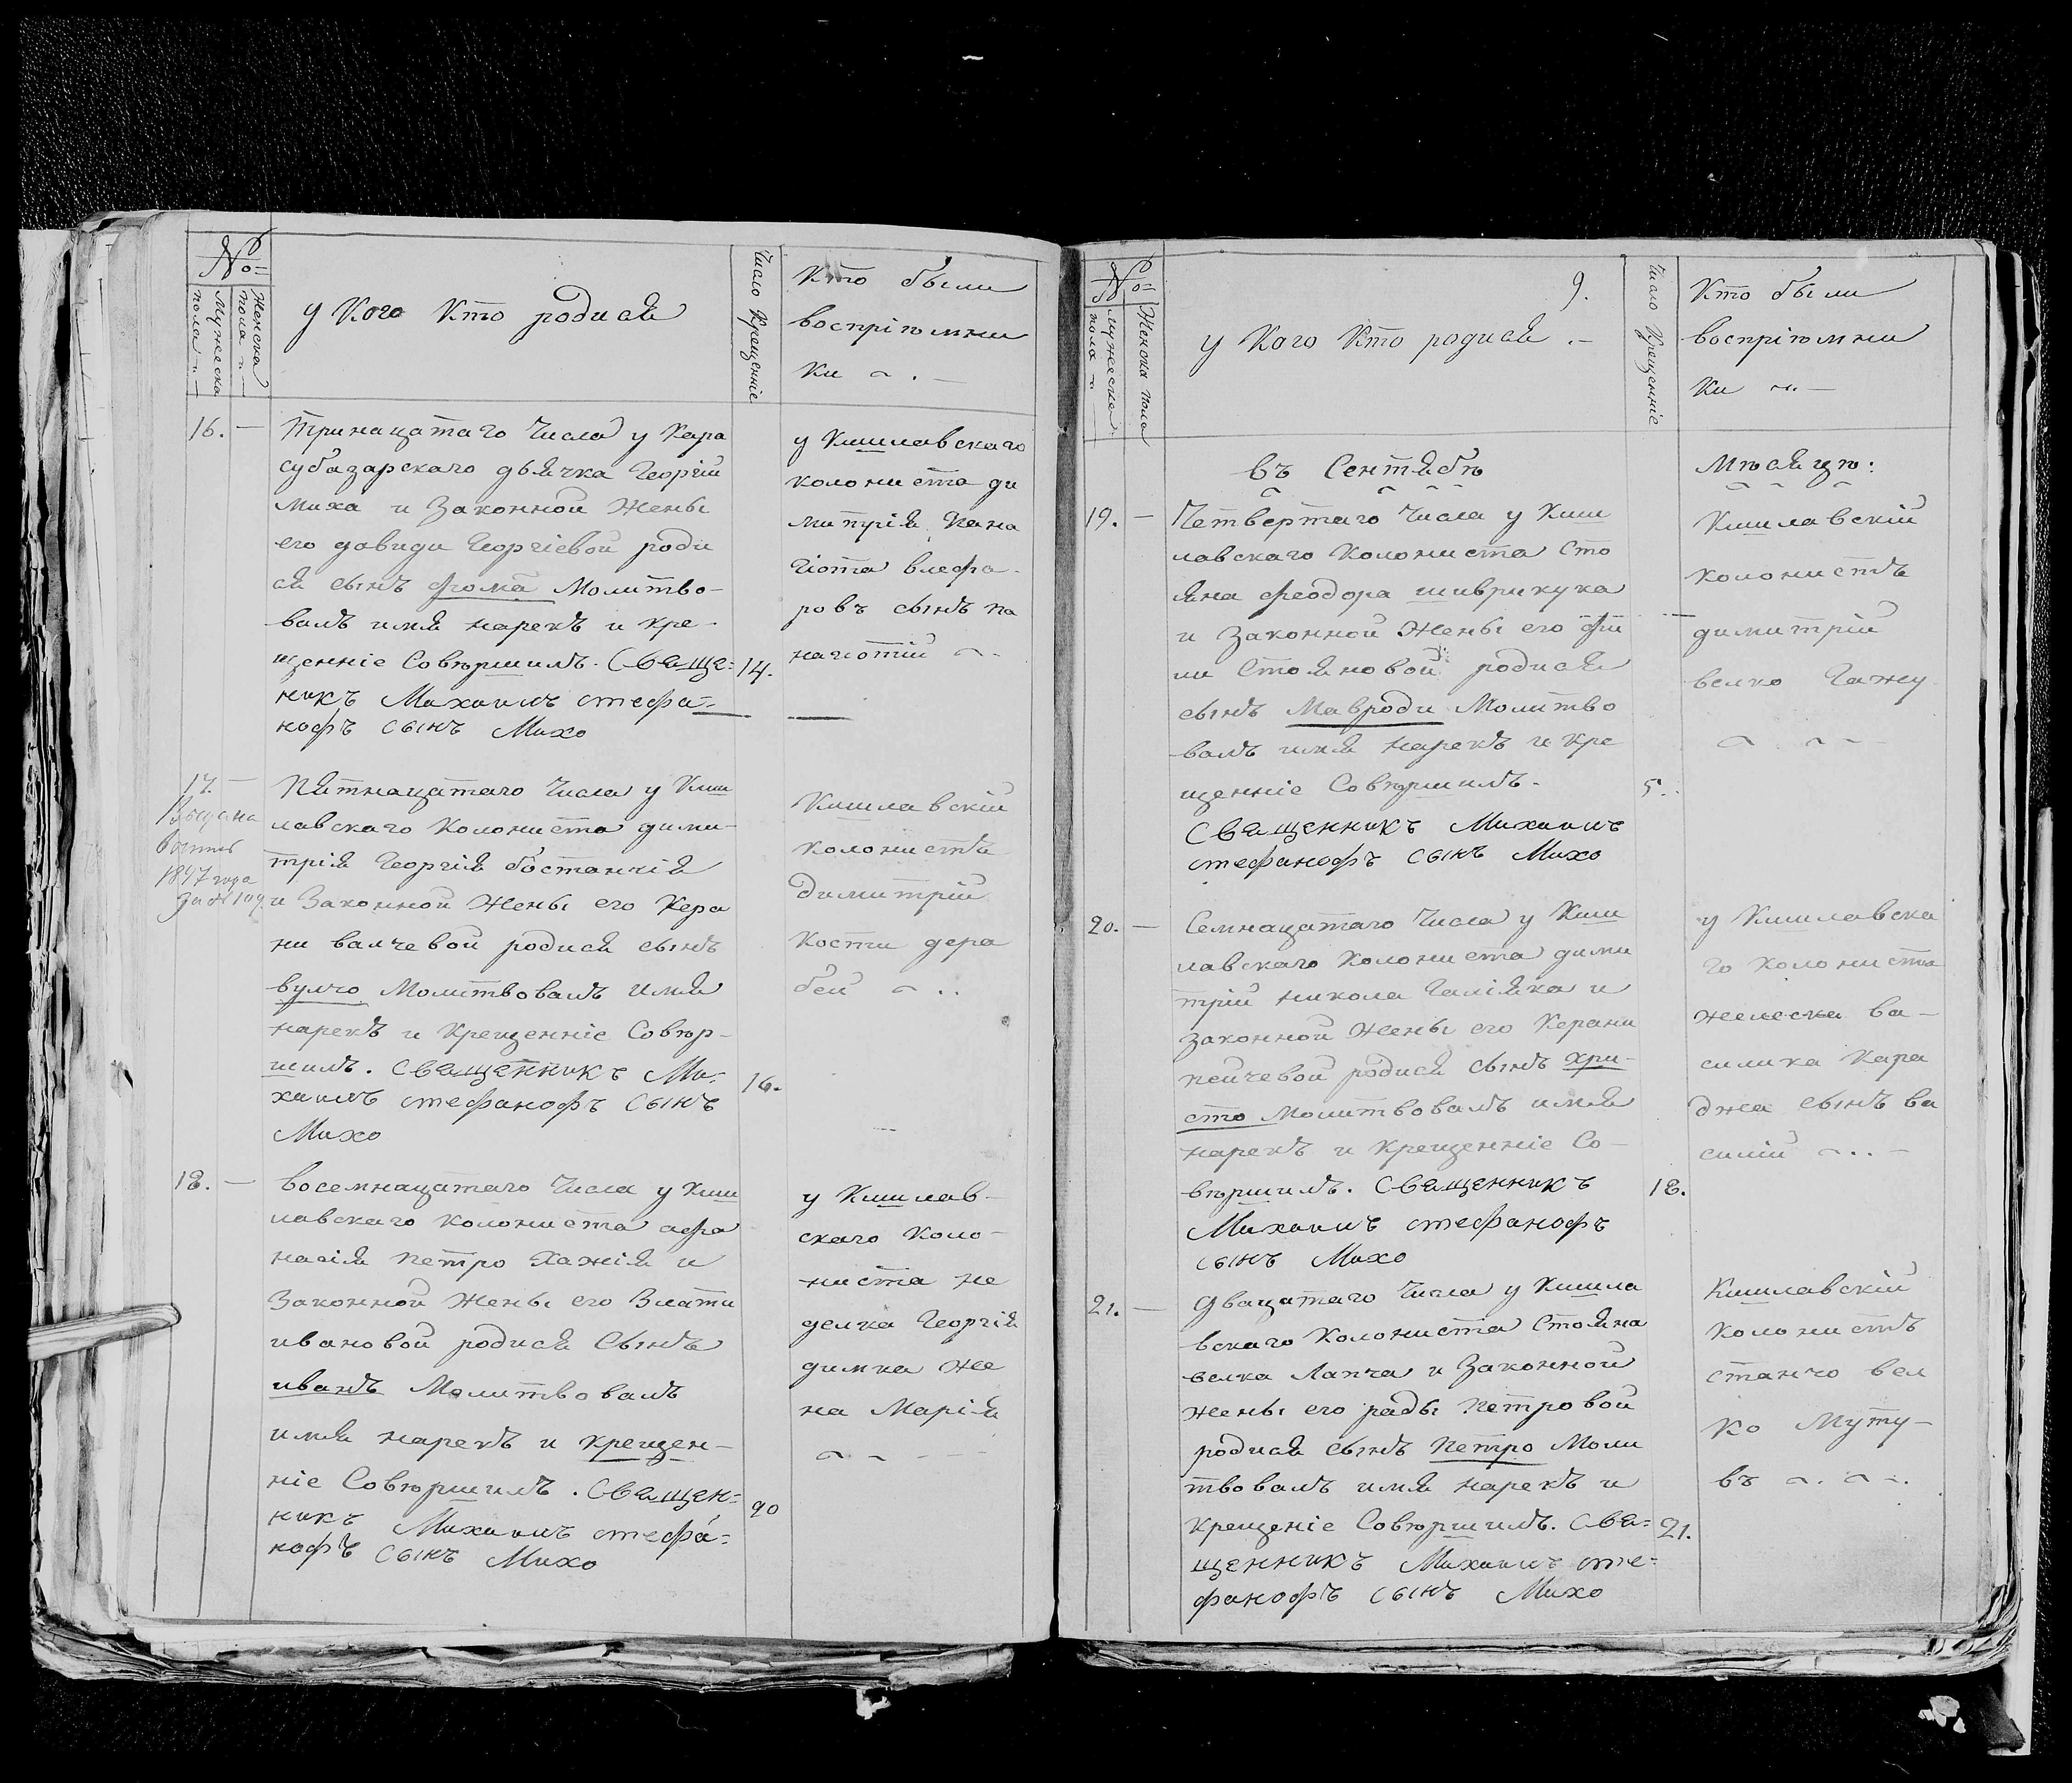 №
Мужеска пола
Женска пола
у Кого Кто родися
Число Крещенніе
Кто были
воспріюмни
ки
16. —
Тринацатаго Числа у Кара
субазарскаго дьячка Георгіи
Миха и Законной Жены
его давиди Георгіевой роди
ся сынъ фома Молитво-
валъ имя нарекъ и кре-
щенніе Совюршилъ. Свяще=
никъ Михаилъ стефа=
нофъ сынъ Михо
14.
у Кишлавскаго
колониста ди
митрія Пана
гіота влефа-
ровъ сынъ па
нагіотій
17. —
Выдана
1897 года
за № 109
Пятнацатаго Числа у Киш
лавскаго Колониста дими-
трія Георгія бостанчія
и Законной Жены его Кера
ни валчевой родися сынъ
вулчо Молитвовалъ Имя
нарекъ и Крещенніе Совюр-
шилъ. Священникъ Ми=
хаилъ стефанофъ сынъ
Михо
16.
Кишлавскій
колонистъ
димитрій
Кости дера
бей
18. —
восемнацатаго Числа у Киш
лавскаго колониста афа
насія Петро Хажія и
Законной Жены его Злати
ивановой родися Сынъ
иванъ Молитвовалъ
имя нарекъ и крещен-
ніе Совюршилъ. Священ=
никъ Михаилъ стефа=
нофъ сынъ Михо
20
у Кишлав-
скаго Коло-
ниста не
делка Георгія
димка Же
на Марія
№
Мужеска пола
Женска пола
9.
у Кого Кто родися
Число Крещенніе
Кто были
воспріюмни
ки
въ Сентябрѣ
Мѣсяцѣ:
19. —
Четвертаго Числа у Киш
лавскаго Колониста Сто
яна феодора шиврикука
и Законной Жены его фи
ли Стояновой родися
сынъ Мавроди Молитво
валъ имя нарекъ и кре
щенніе Совюршилъ.
Священникъ Михаилъ
стефанофъ сынъ Михо
5.
Кишлавскій
колонистъ
димитрій
велко Гажу
20. —
Семнацатаго Числа у Киш
лавскаго колониста дими
трій никола Галіяка и
законной Жены его Керани
пейчевой родися сынъ хри-
сто Молитвовалъ имя
нарекъ и Крещенніе Со-
вюршилъ. Священникъ
Михаилъ стефанофъ
сынъ Михо
18.
у Кишлавска
го колониста
желеска ва-
силика Кара
джа сынъ ва
силій
21. —
двацатаго Числа у Кишла
вскаго Колониста Стояна
велка Лапча и Законной
Жены его рады Петровой
родися сынъ Петро Моли
твовалъ имя нарекъ и
Крещеніе Совюршилъ. Свя=
щенникъ Михаилъ сте=
фанофъ сынъ Михо
21.
Кишлавскій
колонистъ
станчо вел
ко Муту-
въ